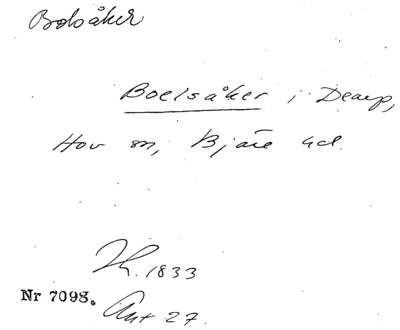 Bolsåker
Boelsåker i Dearp,
Hov sn, Bjäre hd.
1833
Nr 7098.
Ant 27.